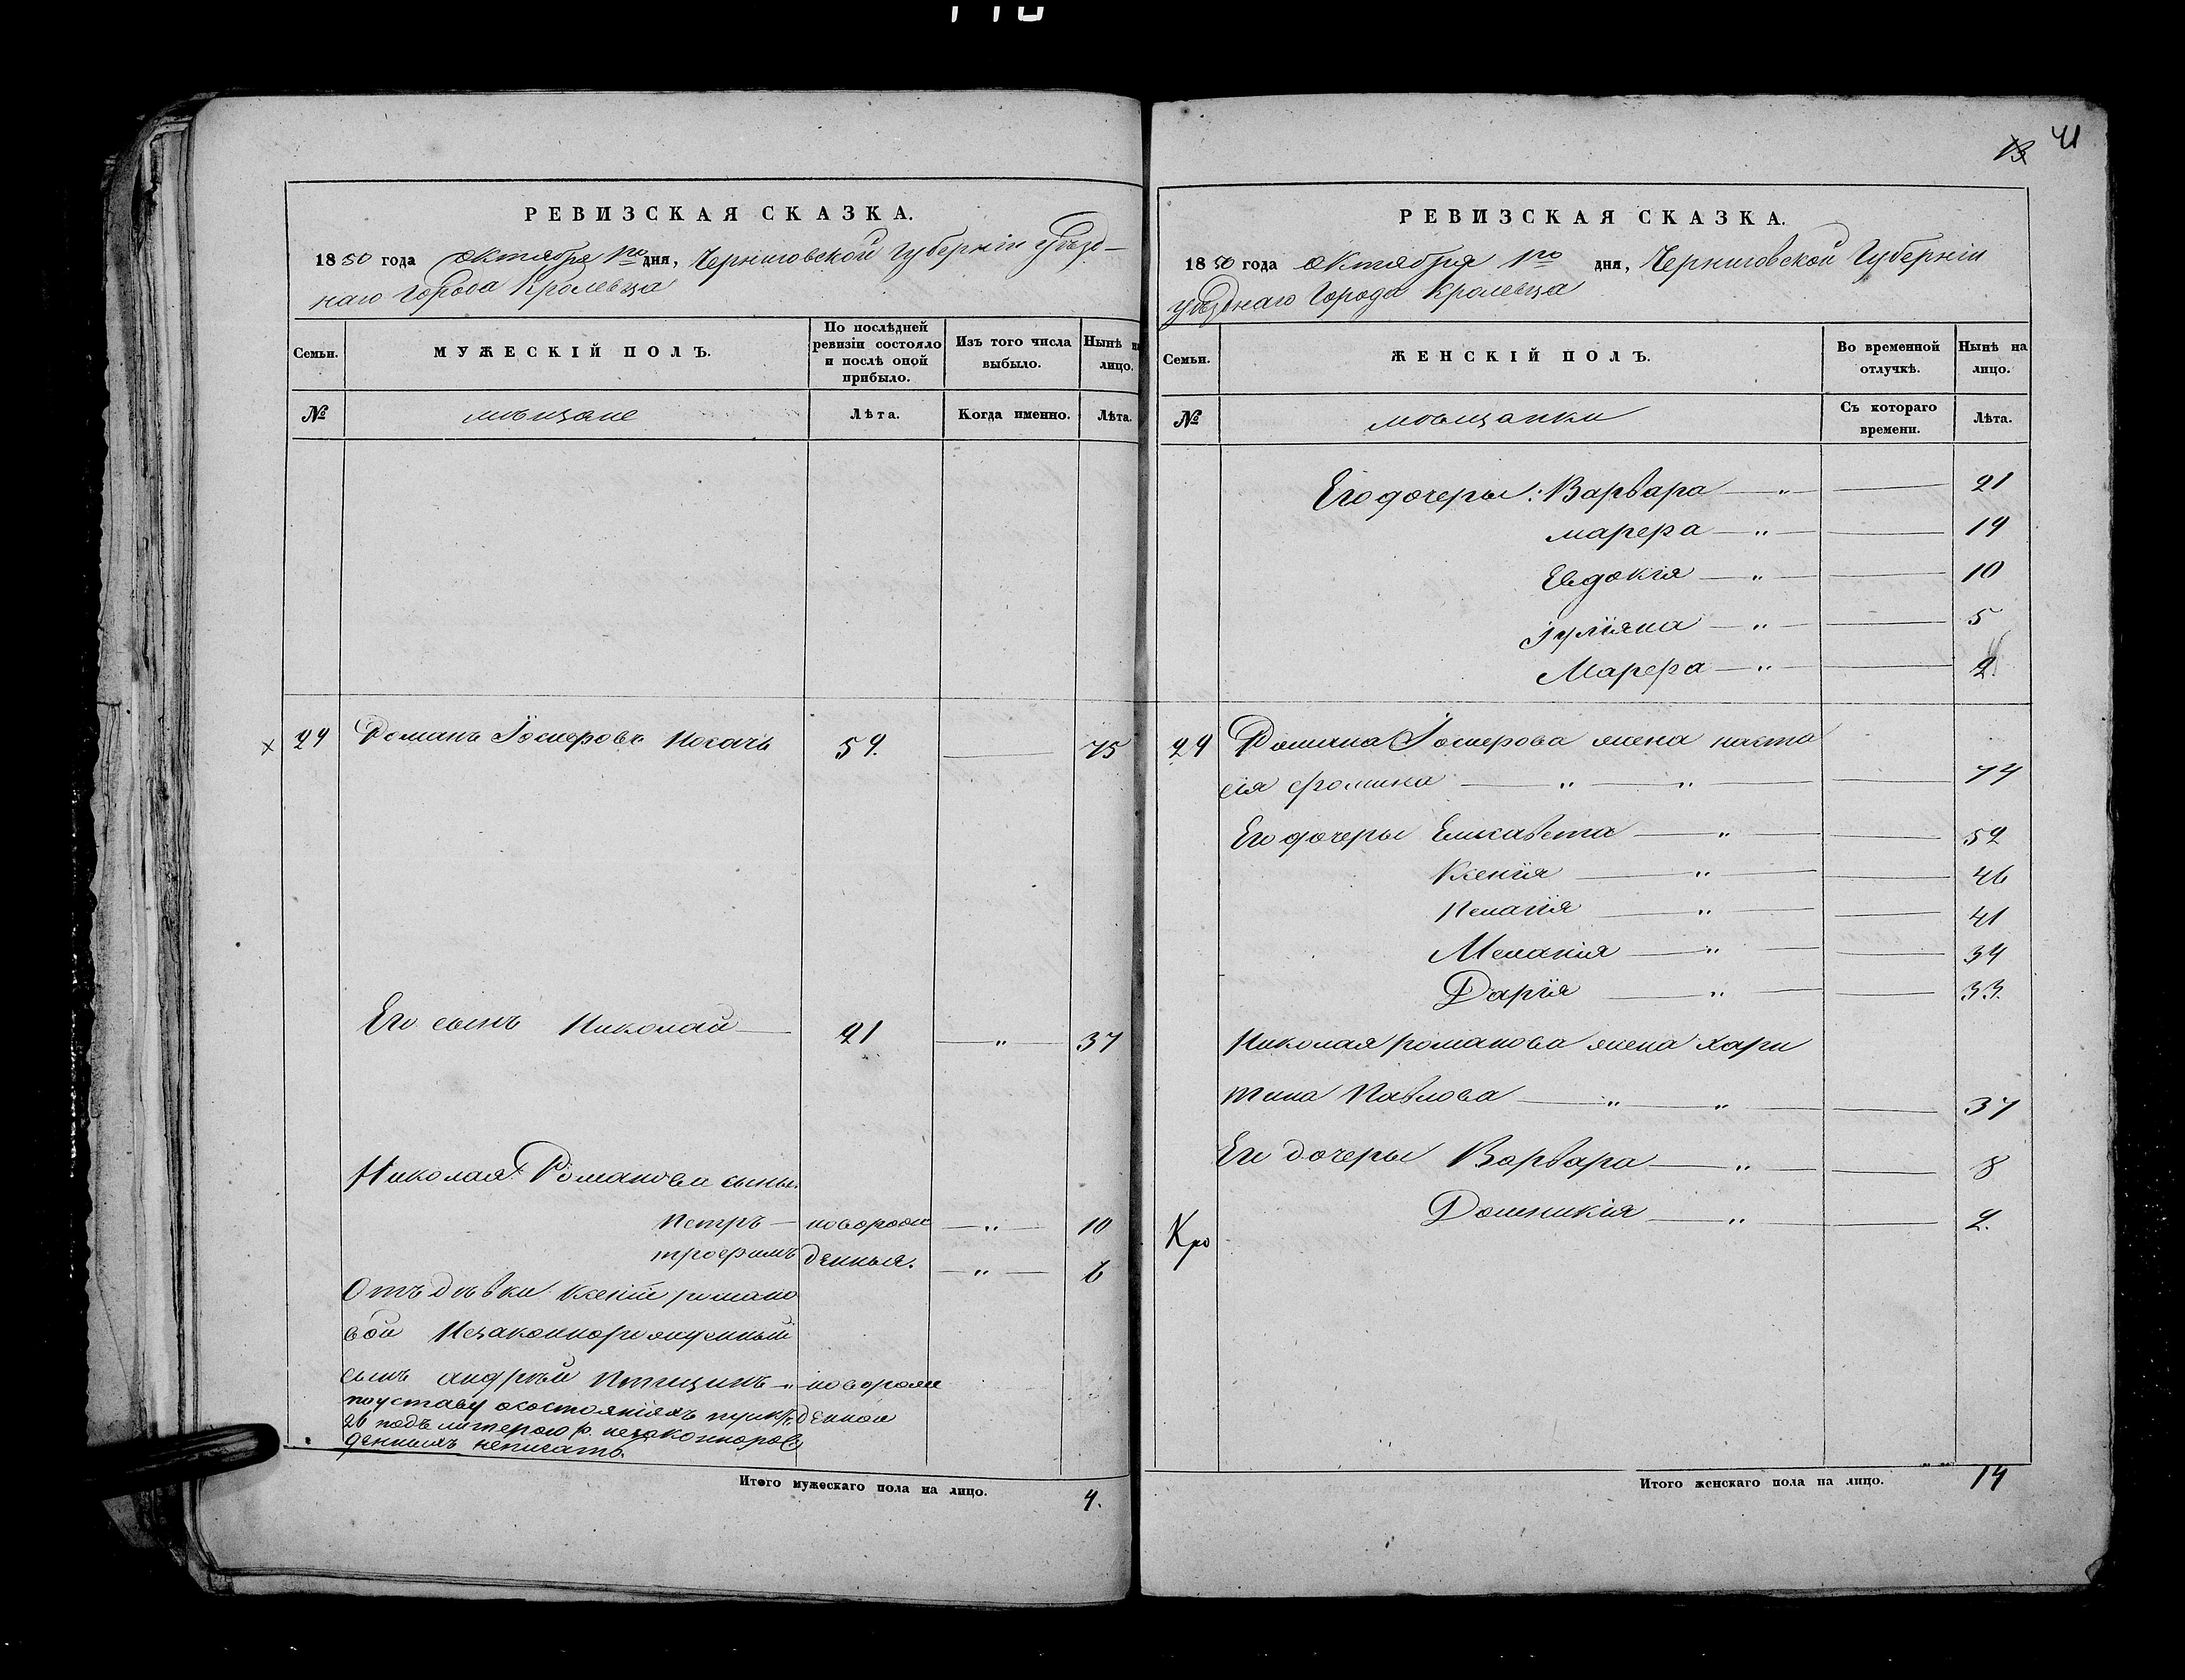 РЕВИЗСКАЯ СКАЗКА.
1850 года октября 1го дня, Черниговской Губерніи уѣзд-
наго Города Кролевца
Семьи.
МУЖЕСКІЙ ПОЛЪ.
По послѣдней ревизіи состояло и послѣ оной прибыло.
Изъ того числа выбыло.
Нынѣ на лицо.
№
мѣщане
Лѣта.
Когда именно.
Лѣта.
29 Романъ Іосифовъ Носачь 59. 75
Его сынъ Николай 21 " 37
Николая Романова сыны
Петръ новорож " 10
трофимъ денныя. " 6
Отъ дѣвки Ксеніи романо
вой Незаконнорожденный
сынъ андрѣй " новорож
поуставу осостояніяхъ пунк. денной
26 подъ литерою р. незаконнорож
денныхъ неписать.
Итого мужескаго пола на лицо. 4.
41
13
РЕВИЗСКАЯ СКАЗКА.
1850 года октября 1го дня, Черниговской Губерніи
уѣзднаго Города Кролевца
Семьи.
ЖЕНСКІЙ ПОЛЪ.
Во временной отлучкѣ.
Нынѣ на лицо.
№
мѣщанки
Съ котораго времени.
Лѣта.
Его дочеры: Варвара " 21
марфа " 19
Евдокія " 10
Іуліяна " 5
Марфа " 2.
29 Романа Іосифова жена наста
сія фомина " " 74
Его дочеры Елисавета " 52
Ксенія " 46
Пелагія " 41
Меланія " 34
Дарія " 33.
Николая романова жена хари
тина Павлова " " 37
Его дочеры Варвара " 8
Домникія " 2.
Кро
Итого женскаго пола на лицо. 14